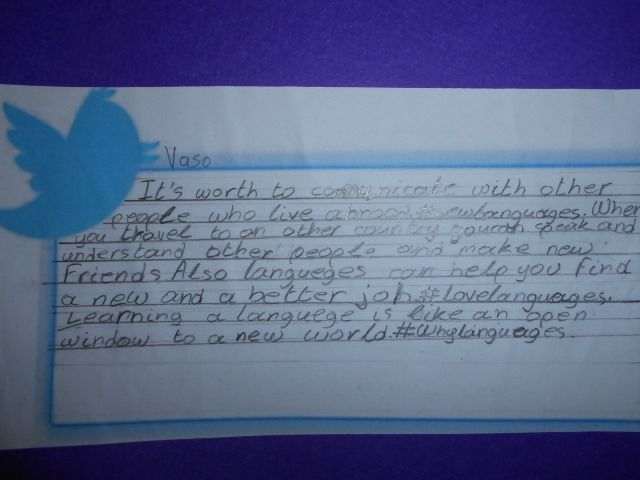 Vaso
It's worth to communicate with other
people who live abroad #newlanguages. When
you travel to an other country you can speak and
understand other people and make new
Friends Also langueges can help you find
a new and a better job. #lovelanguages.
Learning a languege is like an open
window to a new world. #Whylanguages.